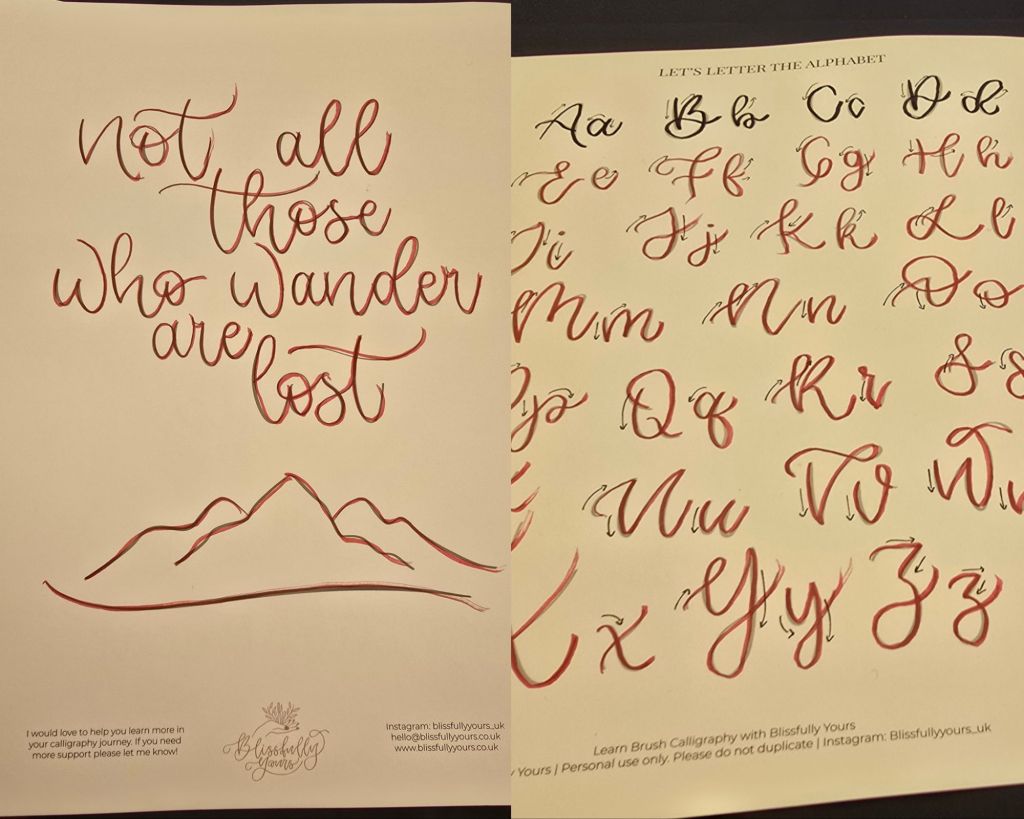 not all
those
who wander
are
lost
I would love to help you learn more in
your calligraphy journey. If you need
more support please let me know!
Blissfully
Yours
Instagram: blissfullyyours_uk
hello@blissfullyyours.co.uk
www.blissfullyyours.co.uk
LET'S LETTER THE ALPHABET
Aa Bb Cc Dd
Ee Ff Gg Hh
Ii Jj Kk Ll
Mm Nn Oo
Pp Qq Rr Ss
Uu Vv W
Xx Yy Zz
Learn Brush Calligraphy with Blissfully Yours
Yours | Personal use only. Please do not duplicate | Instagram: Blissfullyyours_uk